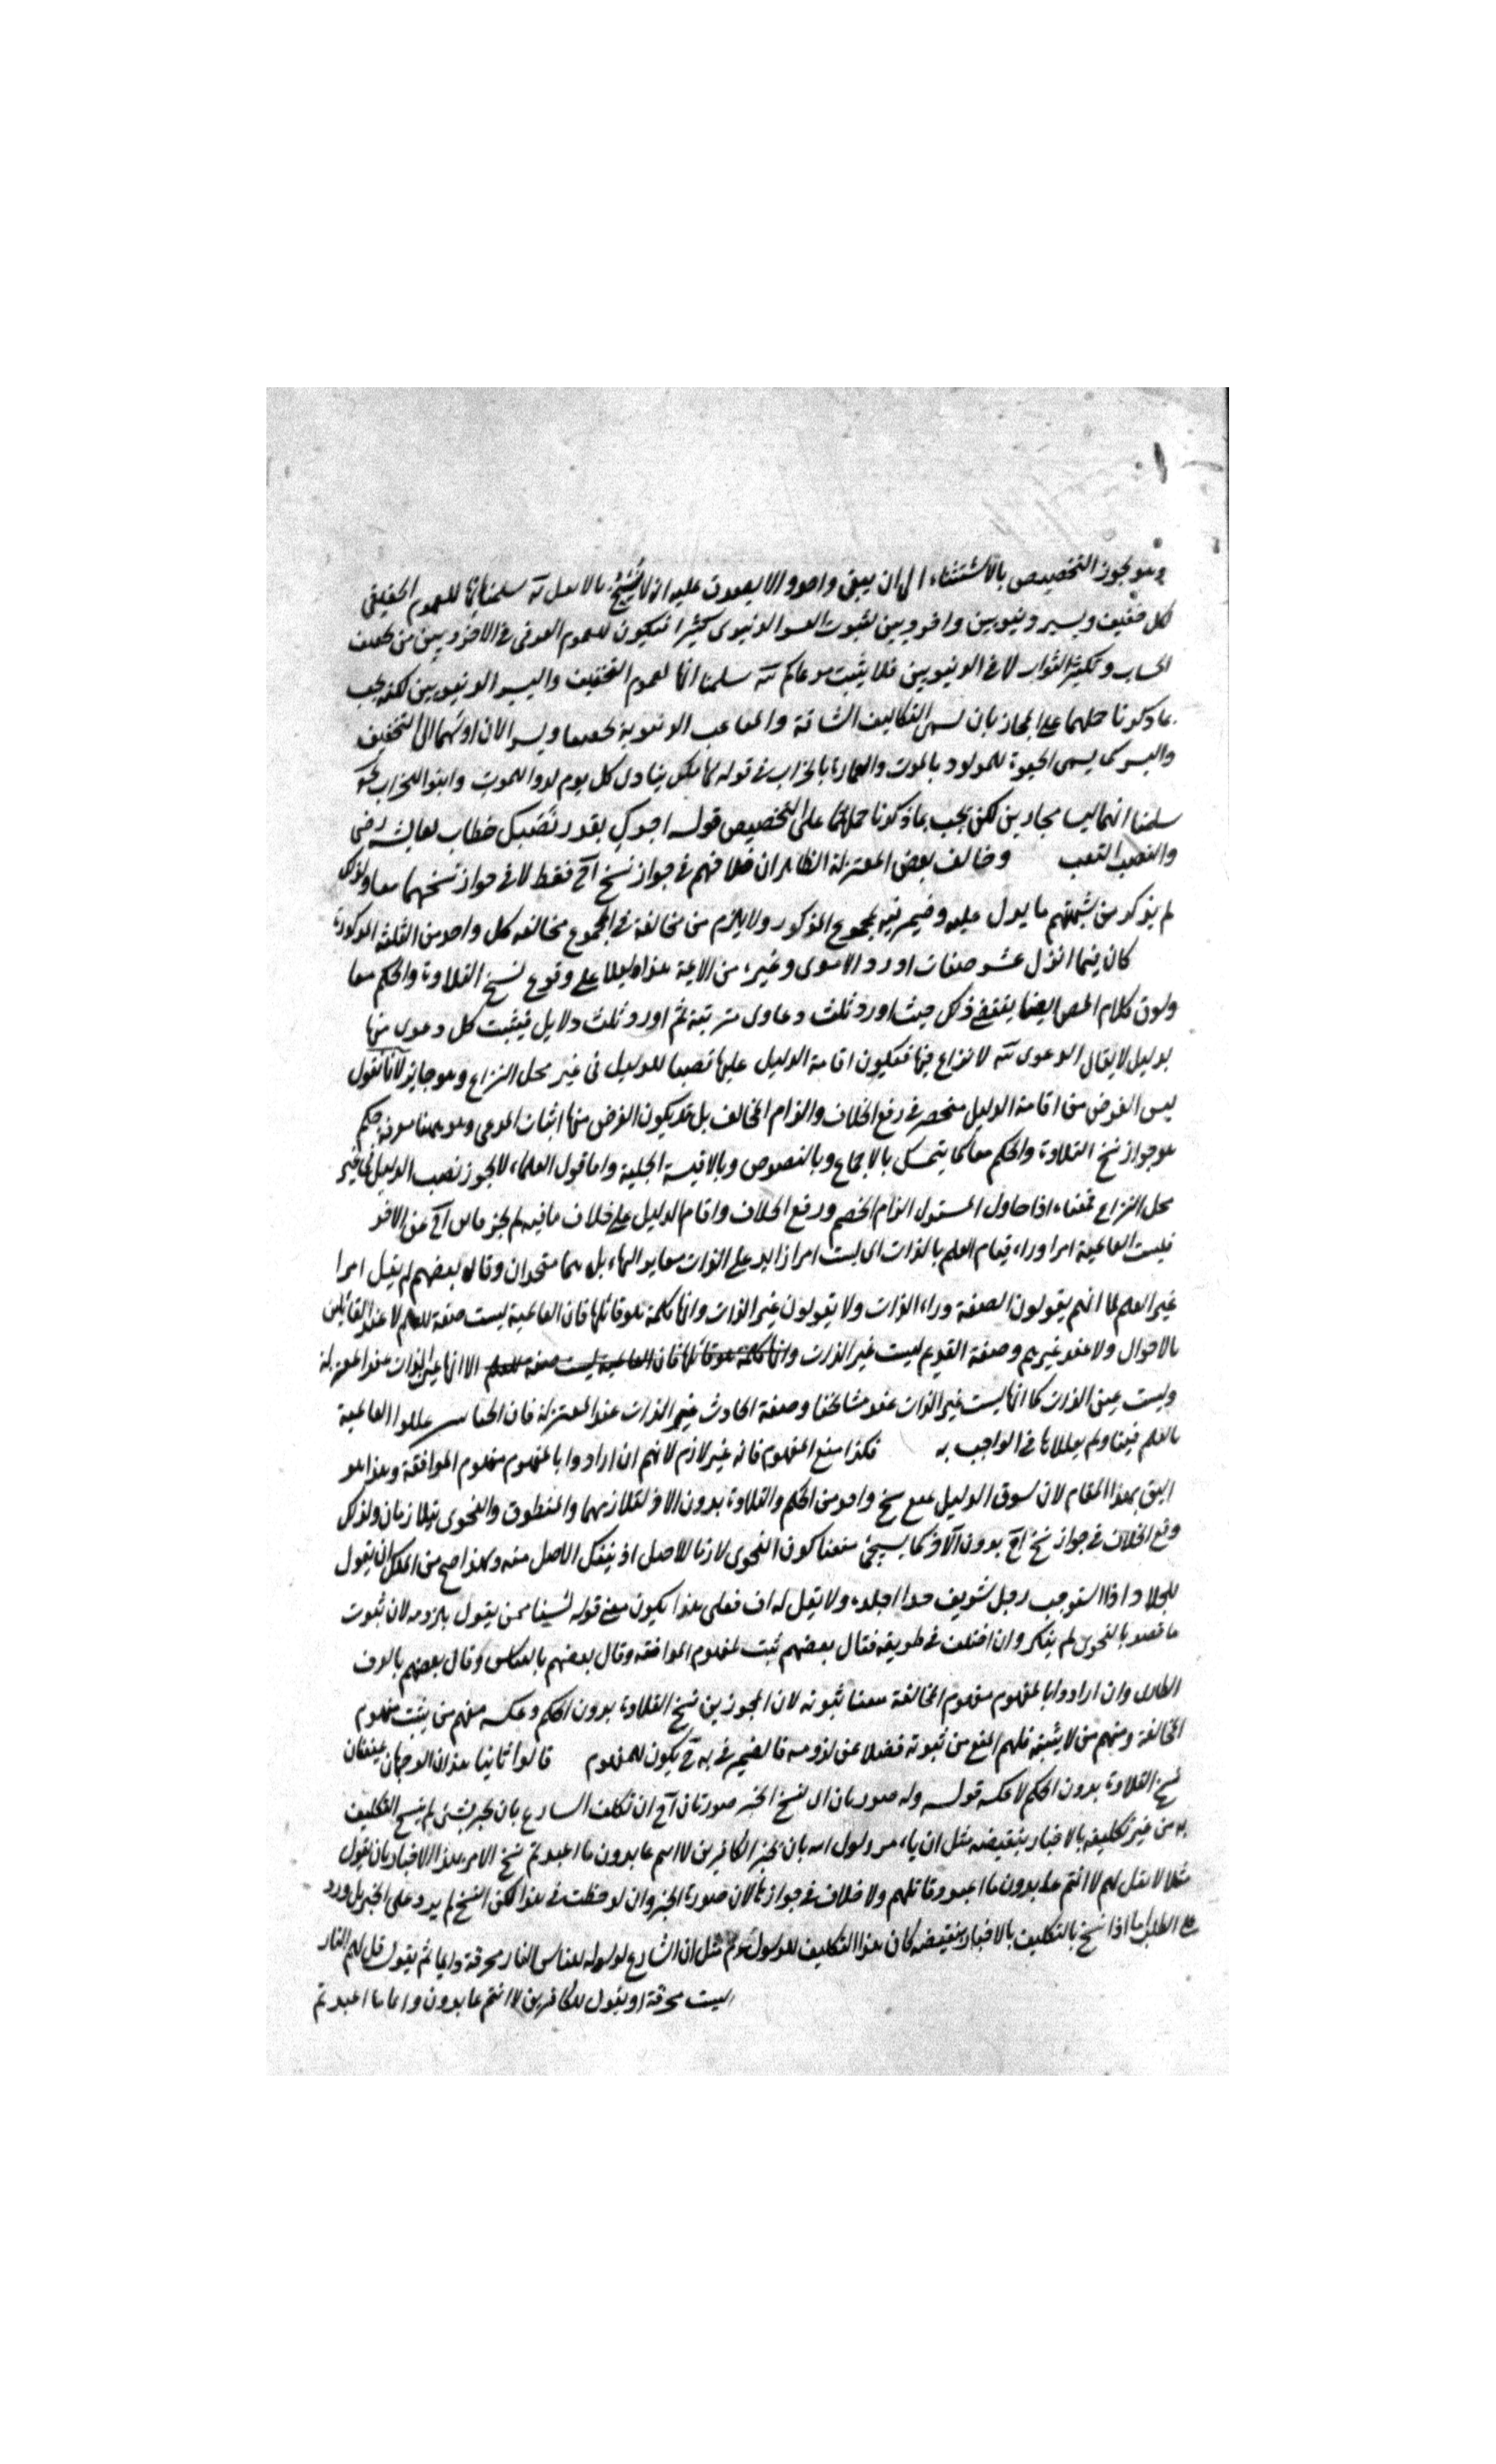 وهو يجوز التخصيص بالاستثناء الى ان يبقى واحد والا يعود عليه انه لا نسخ بالا سلمنا انها للعموم الحقيقي
لكل خفيف ويسير دنيويين واخرويين لثبوت العسر الدنيوى كثيرا فيكون للعموم العرفى فى الاخرويين من تخفيف
الحساب وتكثير الثواب لا فى الدنيويين فلا يثبت مدعاكم سلمنا انها لعموم التخفيف واليسر الدنيويين لكنه يجب
بما ذكرنا حملهما على المجاز بان يسمى التكاليف الشاقة والمتاعب الدنيوية تخفيفا ويسرا لان اولهما الى التخفيف
واليسر كما يسمى الحيوة للمولود بالموت والعمارة بالخراب فى قوله لها ملك ينادى كل يوم لدوا للموت وابنوا للخراب
سلمنا انهما ليسا مجازين لكن يجب بما ذكرنا حملهما على التخصيص قوله اجرك بقدر نصبك خطاب لعائشة رضى
والنصب التعب وخالف بعض المعتزلة الظاهر ان خلافهم فى جواز نسخ احد فقط لا فى جواز نسخهما معا ولذلك
لم يذكر من شبهتهم ما يدل عليه وضمير فيه لمجموع المذكور ولا يلزم من مخالفة فى المجموع مخالفة كل واحد من الثلثة المذكورة
كان فيما انزل عشر رضعات اورد الآمدى وغيره من الائمة هذا دليلا على وقوع نسخ التلاوة والحكم معا
وكون كلام المص ايضا يقتضى ذلك حيث اورد ثلث دعاوى مرتبة ثم اورد ثلث دلايل فيثبت كل دعوى منها
بدليل لا يقال الدعوى لا نزاع فيها فتكون اقامة الدليل عليها نصبا للدليل فى غير محل النزاع وهو جايز لانا نقول
ليس الغرض من اقامة الدليل منحصر فى رفع الخلاف والزام المخالف بل قد يكون الغرض منها اثبات المدعى وهو ههنا معرفة حكم
هو جواز نسخ التلاوة والحكم معا كما يتمسك بالاجماع وبالنصوص وبالاقيسة الجلية واما قول العلماء لا يجوز نصب الدليل فى غير
محل النزاع فمعناه اذا حاول المستدل الزام الخصم ورفع الخلاف واقام الدليل على خلاف ما فيه لم يجز احد عن الاخر
فليست العالمية امرا وراء قيام العلم بالذات اى ليست امرا زايدا على الذات مغايرا لها بل هما متحدان وقال بعضهم لم يقل امرا
غير العلم لما انهم يقولون الصفة وراء الذات ولا يقولون غير الذات وانها كلمة هو قائلها فان العالمية ليست صفة للعلم لا عند القائلين
بالاحوال ولا عند غيرهم وصفة القديم ليست غير الذات وانها كلمة هو قائلها فان العالمية ليست صفة للعلم الا انها غير الذات عند المعتزلة
وليست عين الذات كما انها ليست غير الذات عند مشائخنا وصفة الحادث غير الذات عند المعتزلة فان عللوا العالمية
بالعلم فينا ولم يعللاها فى الواجب به فكذا منع المفهوم فانه غير لازم لانهم ان ارادوا بالمفهوم مفهوم الموافقة وهذا هو
اليق بهذا المقام لان سوق الدليل لمنع نسخ واحد من الحكم والتلاوة بدون الآخر لتلازمهما والمنطوق والفحوى متلازمان ولذلك
وقع الخلاف فى جواز نسخ احد بدون الاخر كما سيجئ منعنا كون الفحوى لازما للاصل اذ ينفك الاصل منه ولهذا صح من الملك ان يقول
للجلاد اذا استوجب رجل شريف حدا اجلده ولا تقل له اف فعلى هذا يكون معنى قوله لسنا ممن يقول بلزومه لان ثبوت
ما قصد بالفحوى لم ينكر وان اختلف فى طريقه فقال بعضهم ثبت لمفهوم الموافقة وقال بعضهم بالقياس وقال بعضهم بالعرف
الطارى وان ارادوا بالمفهوم مفهوم المخالفة منعنا ثبوته لان المجوزين نسخ التلاوة بدون الحكم وعكسه منهم من يثبت مفهوم
المخالفة ومنهم من لا يثبته فلهم المنع من ثبوته فضلا عن لزومه فالضمير فى به يكون للمفهوم قالوا ثانيا هذان الوجهان يمنعان
نسخ التلاوة بدون الحكم لا عكسه قوله وله صورتان اى لنسخ الخبر صورتان احد ان تكلف الشارع بان يخبر بشئ ثم ينسخ التكليف
به من غير تكليفه بالاخبار بنقيضه مثل ان يامر رسول الله بان يخبر الكافرين لا انتم عابدون ما اعبد ثم نسخ الامر بهذا الاخبار بان يقول
مثلا لا تقل لهم لا انتم عابدون ما اعبد وقاتلهم ولا خلاف فى جوازها لان صورة الخبر وان لوحظت فى هذا لكن النسخ لم يرد على الخبر بل ورد
على الطلب اما اذا نسخ بالتكليف بالاخبار بنقيضه كان هذا التكليف للرسول مثل ان الشارع لرسوله للناس النار محرقة دايما ثم يقول قل لهم النار
ليست محرقة او يقول للكافرين لا انتم عابدون دايما ما اعبد ثم